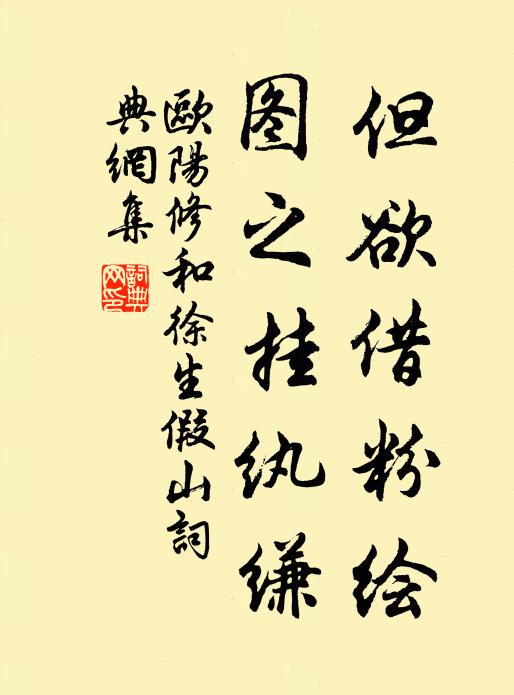 但欲借粉绘
图之挂纨缣
歐陽修和徐生假山詞
典網集
詞典网印